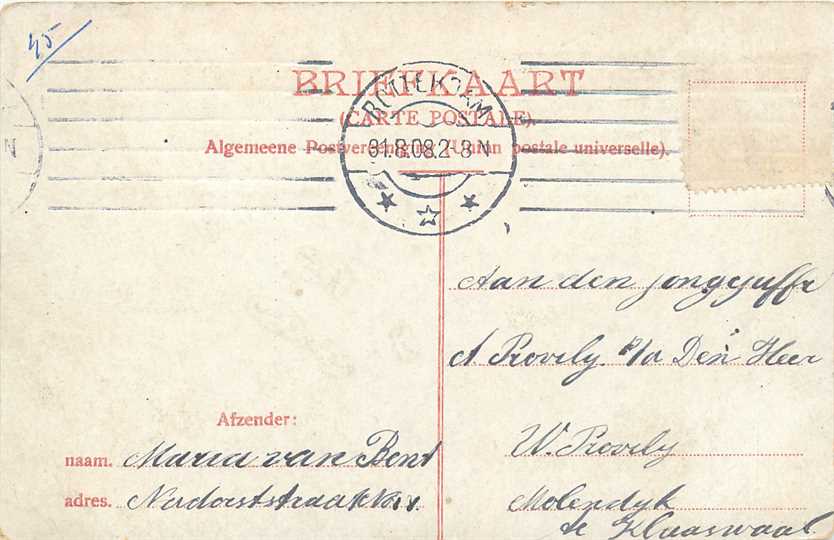 45
BRIEFKAART
(CARTE POSTALE).
Algemeene Postvereeniging (Union postale universelle).
ROTTERDAM
31.8.08.2-3 N
N
Aan den jongejuffr
A Provily p/a Den Heer
W. Provily
Molendyk
te Klaaswaal
Afzender:
naam. Maria van Bent
adres.